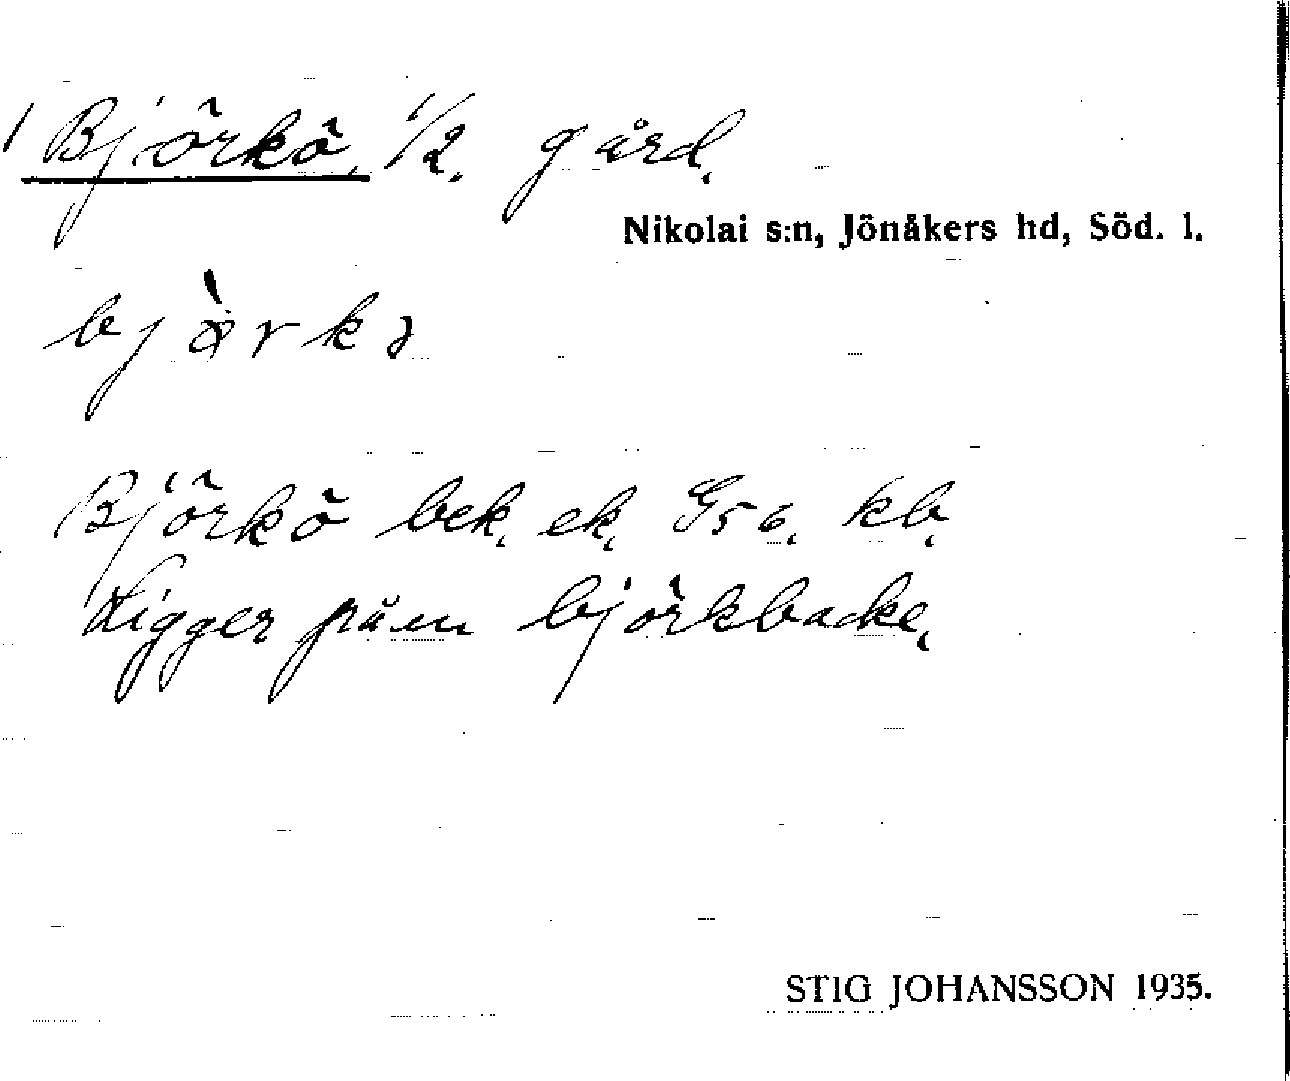 Björkö, 1/2. gård,
Nikolai s:n, Jönåkers hd, Söd. l.
Björkö bek, ek, G56, kb,
Ligger på en björkbacke,
STIG JOHANSSON 1935.